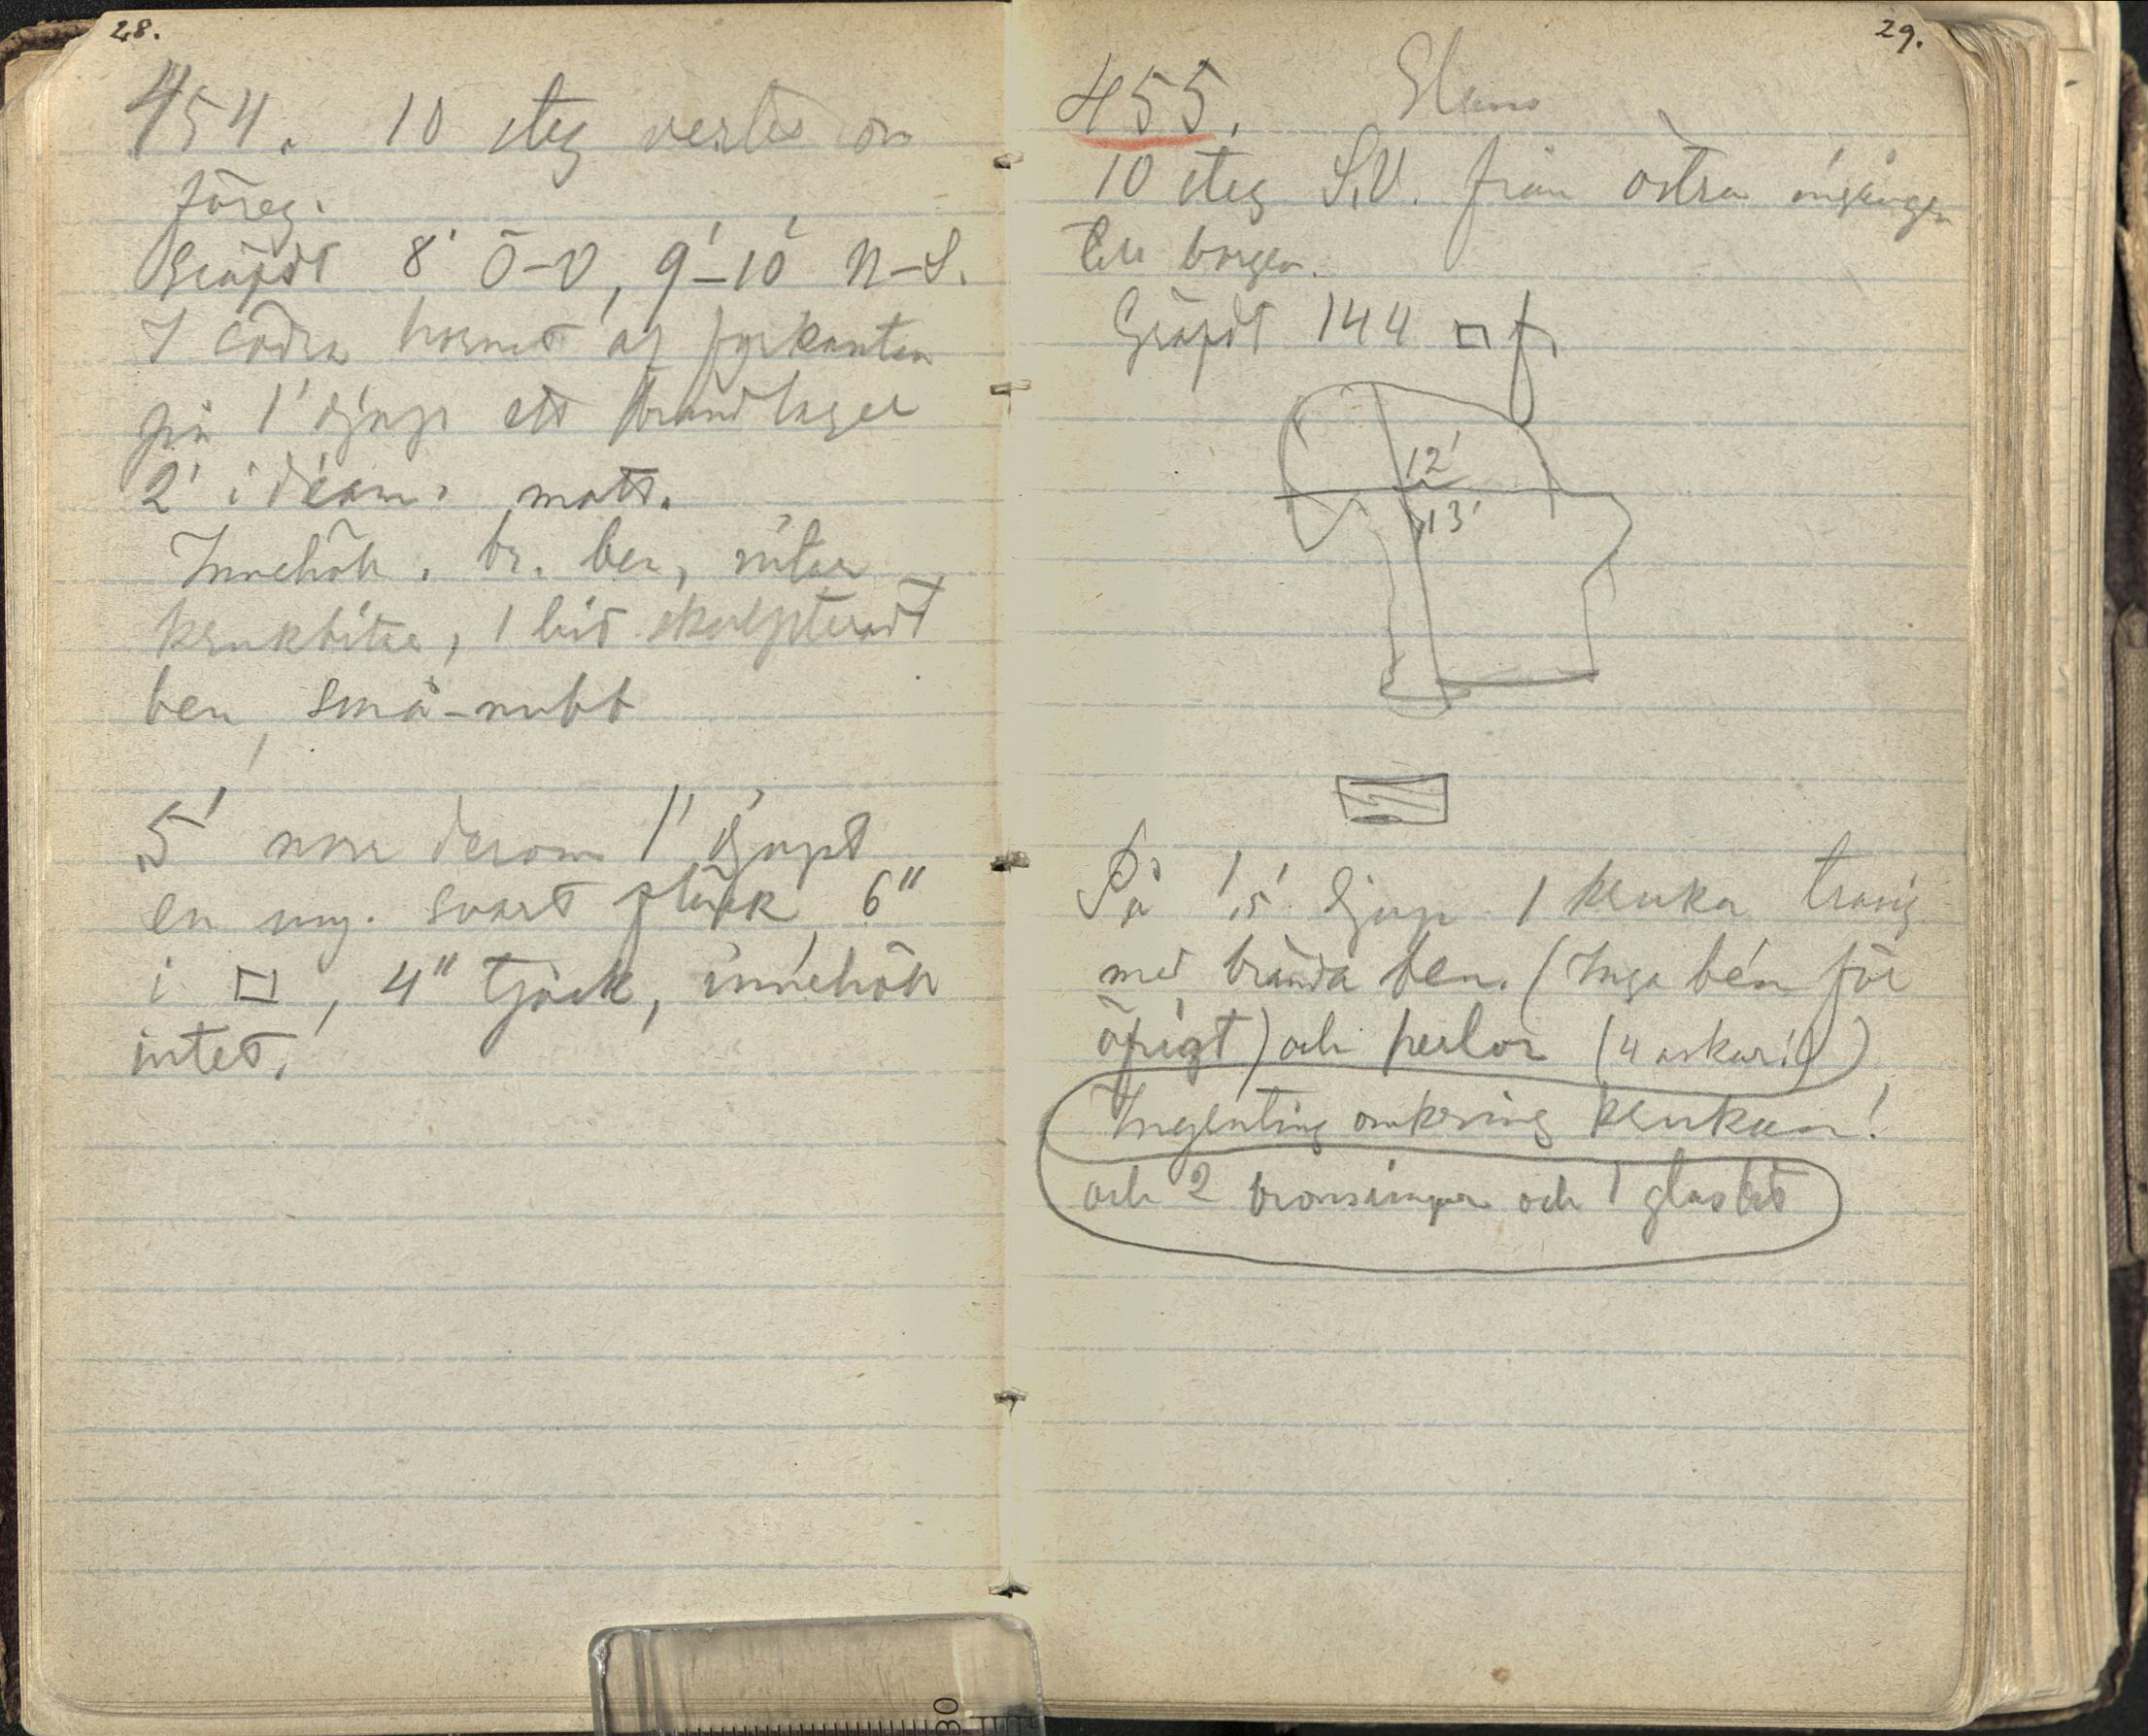 28.
454. 10 steg vester om
föreg.
Gräfdt 8' Ö–V, 9'–10' N–S.
I södra hörnet af fyrkanten
på 1' djup ett brandlager
2' i diam. matt.
Innehöll. br. ben, nitar
krukbitar, 1 bit skulpteradt
ben, små-nubb
5' norr derom 1' djupt
en my. svart fläck 6"
i □, 4" tjock, innehöll
intet.
29.
455.
10 steg S.V. från östra ingången
till borgen.
Gräfdt 144 □ f.
12'
13'
På 1,5' djup 1 kruka
med brända ben. (Inga ben för
öfrigt) och perlor (4 askar!!)
Ingenting omkring krukan!
och 2 bronsringar och 1 glasbit
30